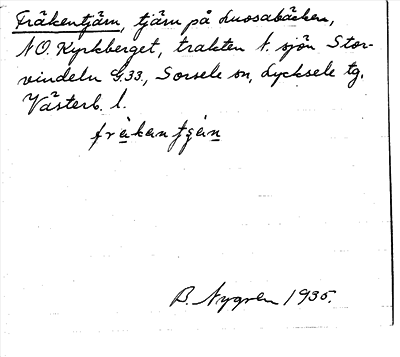 Fräkentjärn, tjärn på Luosabäcken,
NO. Kyrkberget, trakten t. sjön Stor-
vindeln G.33., Sorsele sn, Lycksele tg.
Västerb. l.
fräkantjän
B. Nygren 1935.